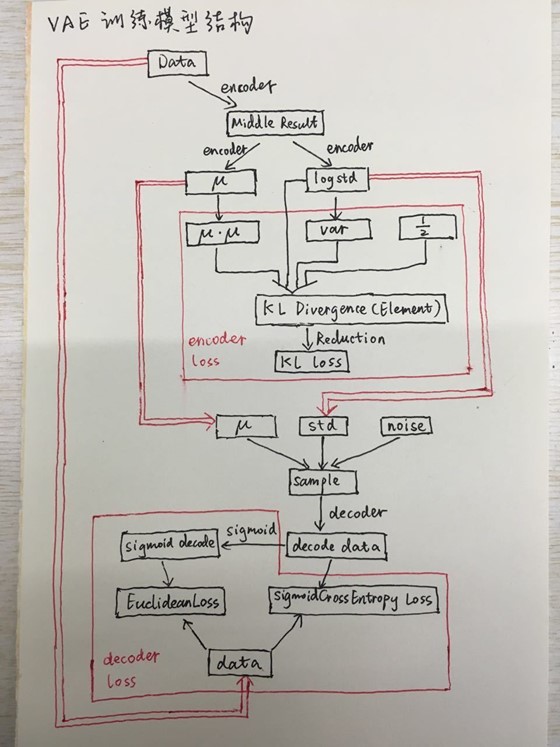 VAE 训练模型结构
Data
encoder
Middle Result
encoder
encoder
μ
logstd
μ·μ
var
1/2
KL Divergence (Element)
Reduction
KL Loss
encoder
loss
μ
std
noise
sample
decoder
sigmoid decode
sigmoid
decode data
EuclideanLoss
SigmoidCrossEntropy Loss
data
decoder
loss